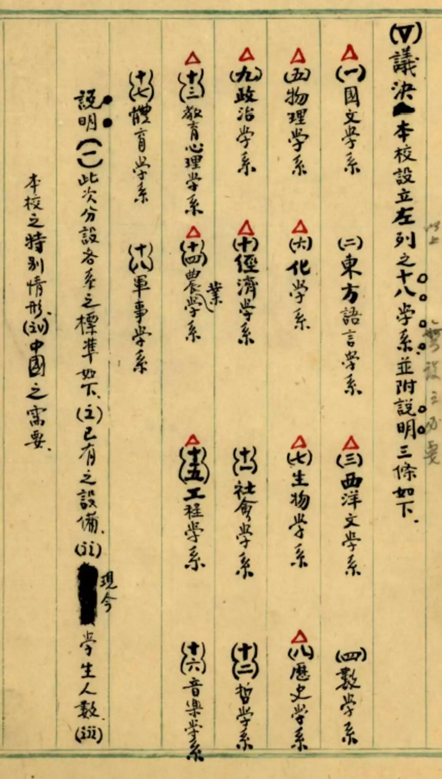 (V)議決本校設立左列之十八学系並附説明三條如下.
△(一)國文学系 (二)東方語言学系 △(三)西洋文学系 (四)數学系
△(五)物理学系 △(六)化学系 △(七)生物学系 △(八)歷史学系
△(九)政治学系 △(十)經濟学系 (十一)社會学系 (十二)哲学系
△(十三)教育心理学系 △(十四)農業学系 △(十五)工程学系 (十六)音樂学系
(十七)體育学系 (十八)軍事学系
説明(一)此次分設各系之標準如下.(i)已有之設備.(ii)現今学生人數.(iii)
本校之特别情形.(iv)中國之需要.